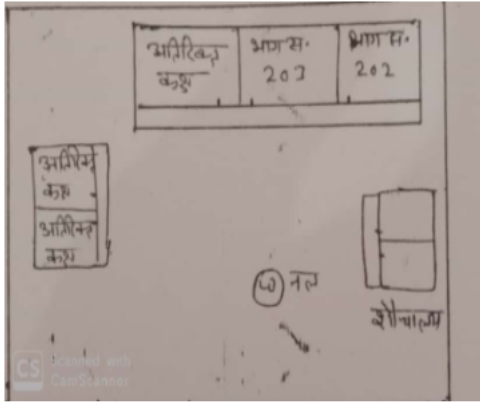 अतिरिक्त
कक्ष
भाग सं.
203
भाग सं.
202
अतिरिक्त
कक्ष
अतिरिक्त
कक्ष
नल
शौचालय
CS Scanned with
CamScanner